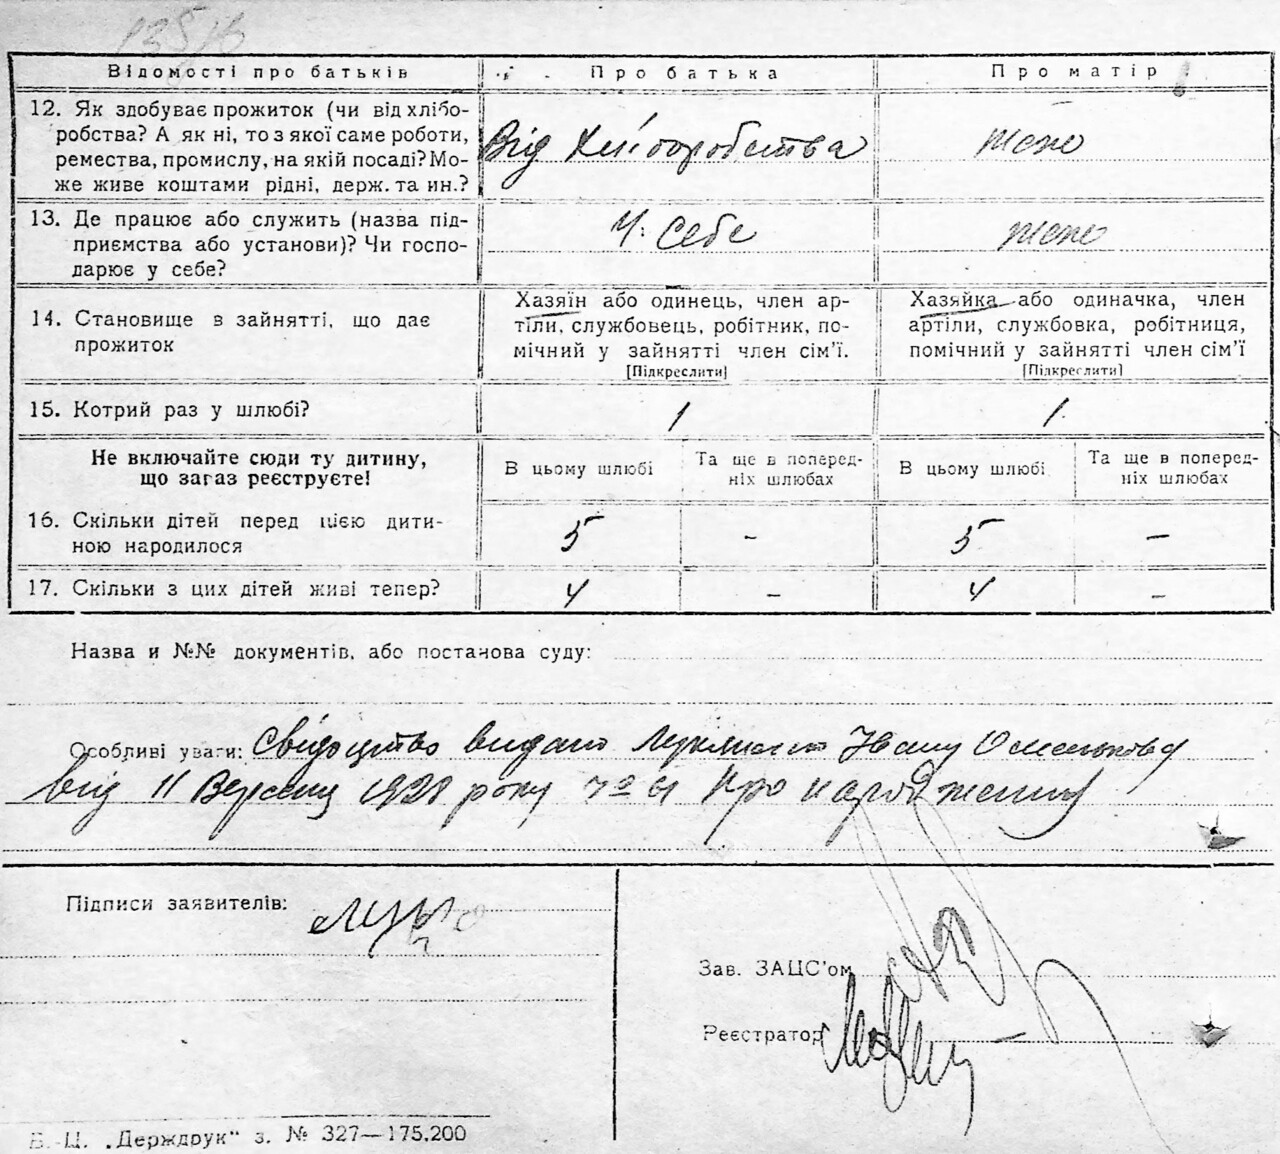 Відомості про батьків
Про батька
Про матір
12. Як здобуває прожиток (чи від хлібо-
робства? А як ні, то з якої саме роботи,
ремества, промислу, на якій посаді? Мо-
же живе коштами рідні, держ. та ин.?
Від Хліборобства
теж
13. Де працює або служить (назва під-
приємства або установи)? Чи госпо-
дарює у себе?
У себе
теж
14. Становище в зайнятті, що дає
прожиток
Хазяїн або одинець, член ар-
тіли, службовець, робітник, по-
мічний у зайнятті член сім’ї.
[Підкреслити]
Хазяйка або одиначка, член
артіли, службовка, робітниця,
помічний у зайнятті член сім’ї
[Підкреслити]
15. Котрий раз у шлюбі?
1
1
Не включайте сюди ту дитину,
що загаз реєструєте!
В цьому шлюбі
Та ще в поперед-
ніх шлюбах
В цьому шлюбі
Та ще в поперед-
ніх шлюбах
16. Скільки дітей перед цією дити-
ною народилося
5
-
5
-
17. Скільки з цих дітей живі тепер?
4
-
4
-
Назва и №№ документів, або постанова суду:
Особливі уваги: Свідоцтво видано Івану
від 11 Вересня 1928 року Про народження
Підписи заявителів:
Зав. ЗАЦС’ом
Реєстратор
В.-Ц. „Держдрук“ з. № 327—175.200